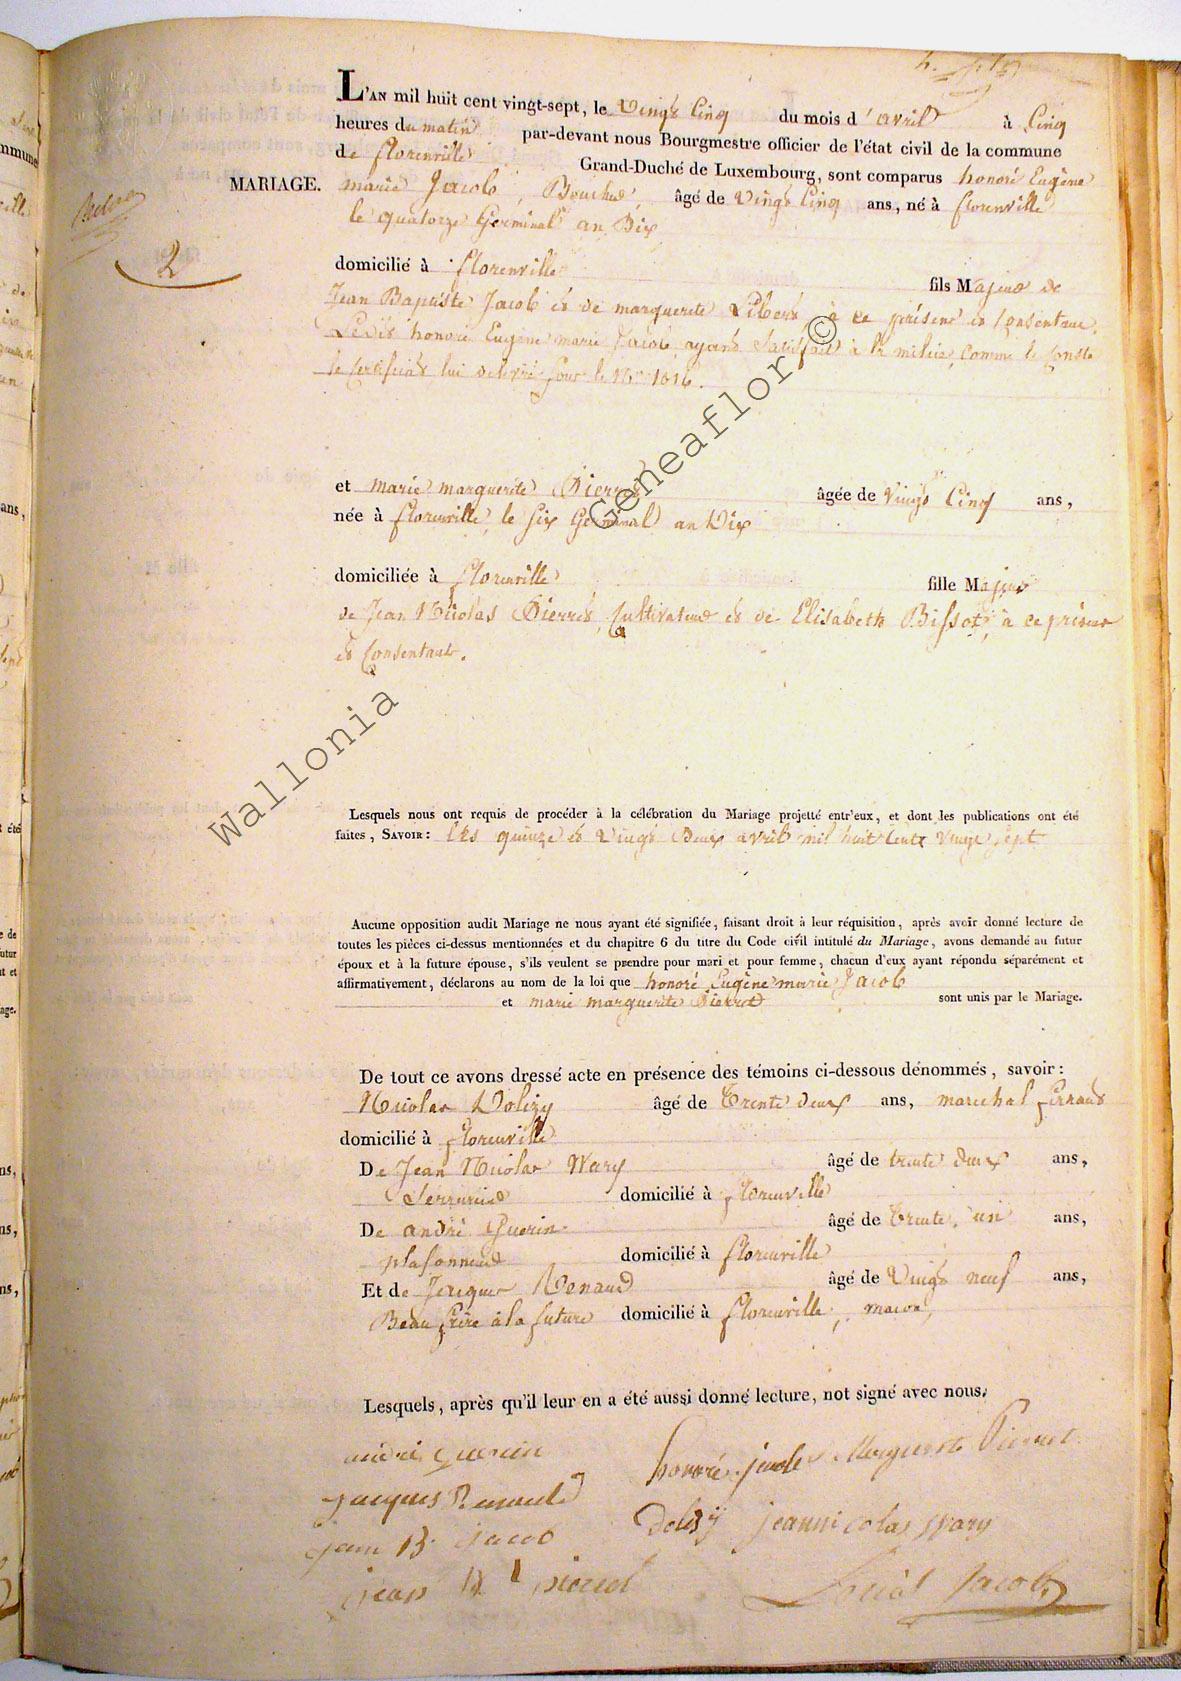 L'AN mil huit cent vingt-sept, le Vingt Cinq du mois d'avril à Cinq
heures du matin par-devant nous Bourgmestre officier de l'état civil de la commune
de florenville Grand-Duché de Luxembourg, sont comparus honoré Eugène
MARIAGE. marie Jacob, Boucher, âgé de Vingt Cinq ans, né à florenville
le quatorze Germinal an Dix
2
domicilié à florenville fils Majeur de
Jean Baptiste Jacob et de marguerite Libert, à ce présent et Consentant,
Ledit honoré Eugène marie Jacob ayant Satisfait à la milice, Comme le Conste
le Certificat lui delivré sous le N° 1016.
et marie marguerite Pierret âgée de Vingt Cinq ans,
née à florenville le six Germinal an Dix
domiciliée à florenville fille Majeure
de Jean Nicolas Pierret, Cultivateur et de Elisabeth Bissot, à ce présent
et Consentant.
Lesquels nous ont requis de procéder à la célébration du Mariage projetté entr'eux, et dont les publications ont été
faites, SAVOIR: les quinze et Vingt Deux avril mil huit Cent Vingt sept
Aucune opposition audit Mariage ne nous ayant été signifiée, faisant droit à leur réquisition, après avoir donné lecture de
toutes les pièces ci-dessus mentionnées et du chapitre 6 du titre du Code civil intitulé du Mariage, avons demandé au futur
époux et à la future épouse, s'ils veulent se prendre pour mari et pour femme, chacun d'eux ayant répondu séparément et
affirmativement, déclarons au nom de la loi que honoré Eugène marie Jacob
et marie marguerite Pierret sont unis par le Mariage.
De tout ce avons dressé acte en présence des témoins ci-dessous dénommés, savoir:
Nicolas Dolizy âgé de Trente deux ans, marechal ferrant
domicilié à florenville
De Jean Nicolas Wary âgé de trente deux ans,
Serrurier domicilié à florenville
De andré Guerin âgé de Trente un ans,
plafonneur domicilié à florenville
Et de Jacques Renaud âgé de Vingt neuf ans,
Beau frère à la future domicilié à florenville, macon,
Lesquels, après qu'il leur en a été aussi donné lecture, not signé avec nous.
andré guerin honoré jacob Marguerite Pierret
jacques Renauld Dolizy jean nicolas Wary
jean B. jacob
jean N pierret Jacob
Wallonia Geneaflor ©